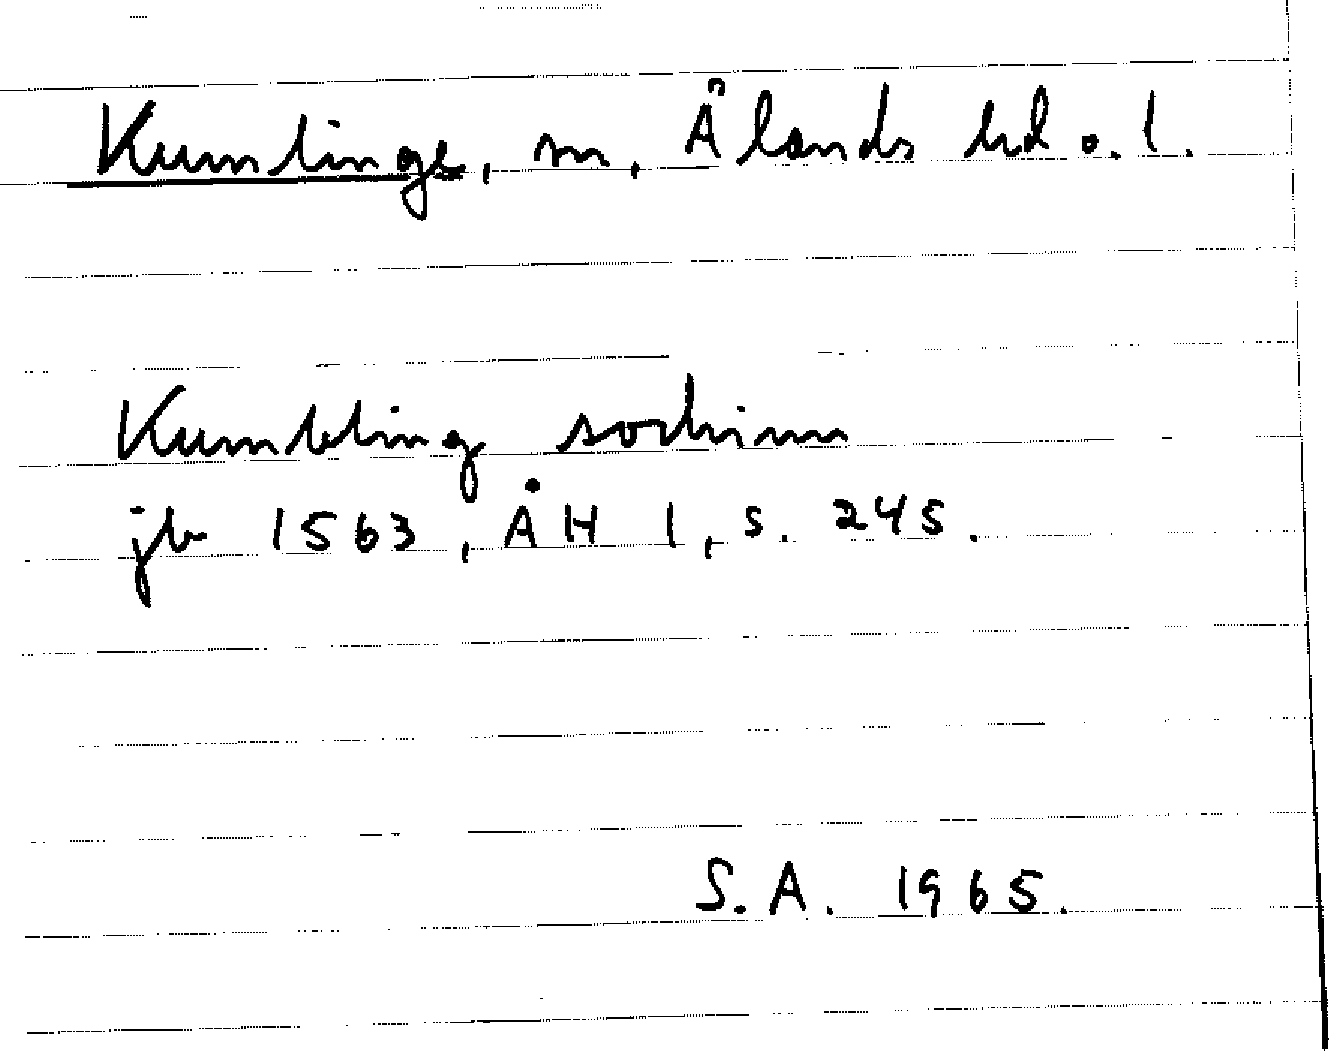 Kumlinge, sn, Ålands hd o. l.
Kumbling sochinn
jb 1563, ÅH 1, s. 245.
S.A. 1965.